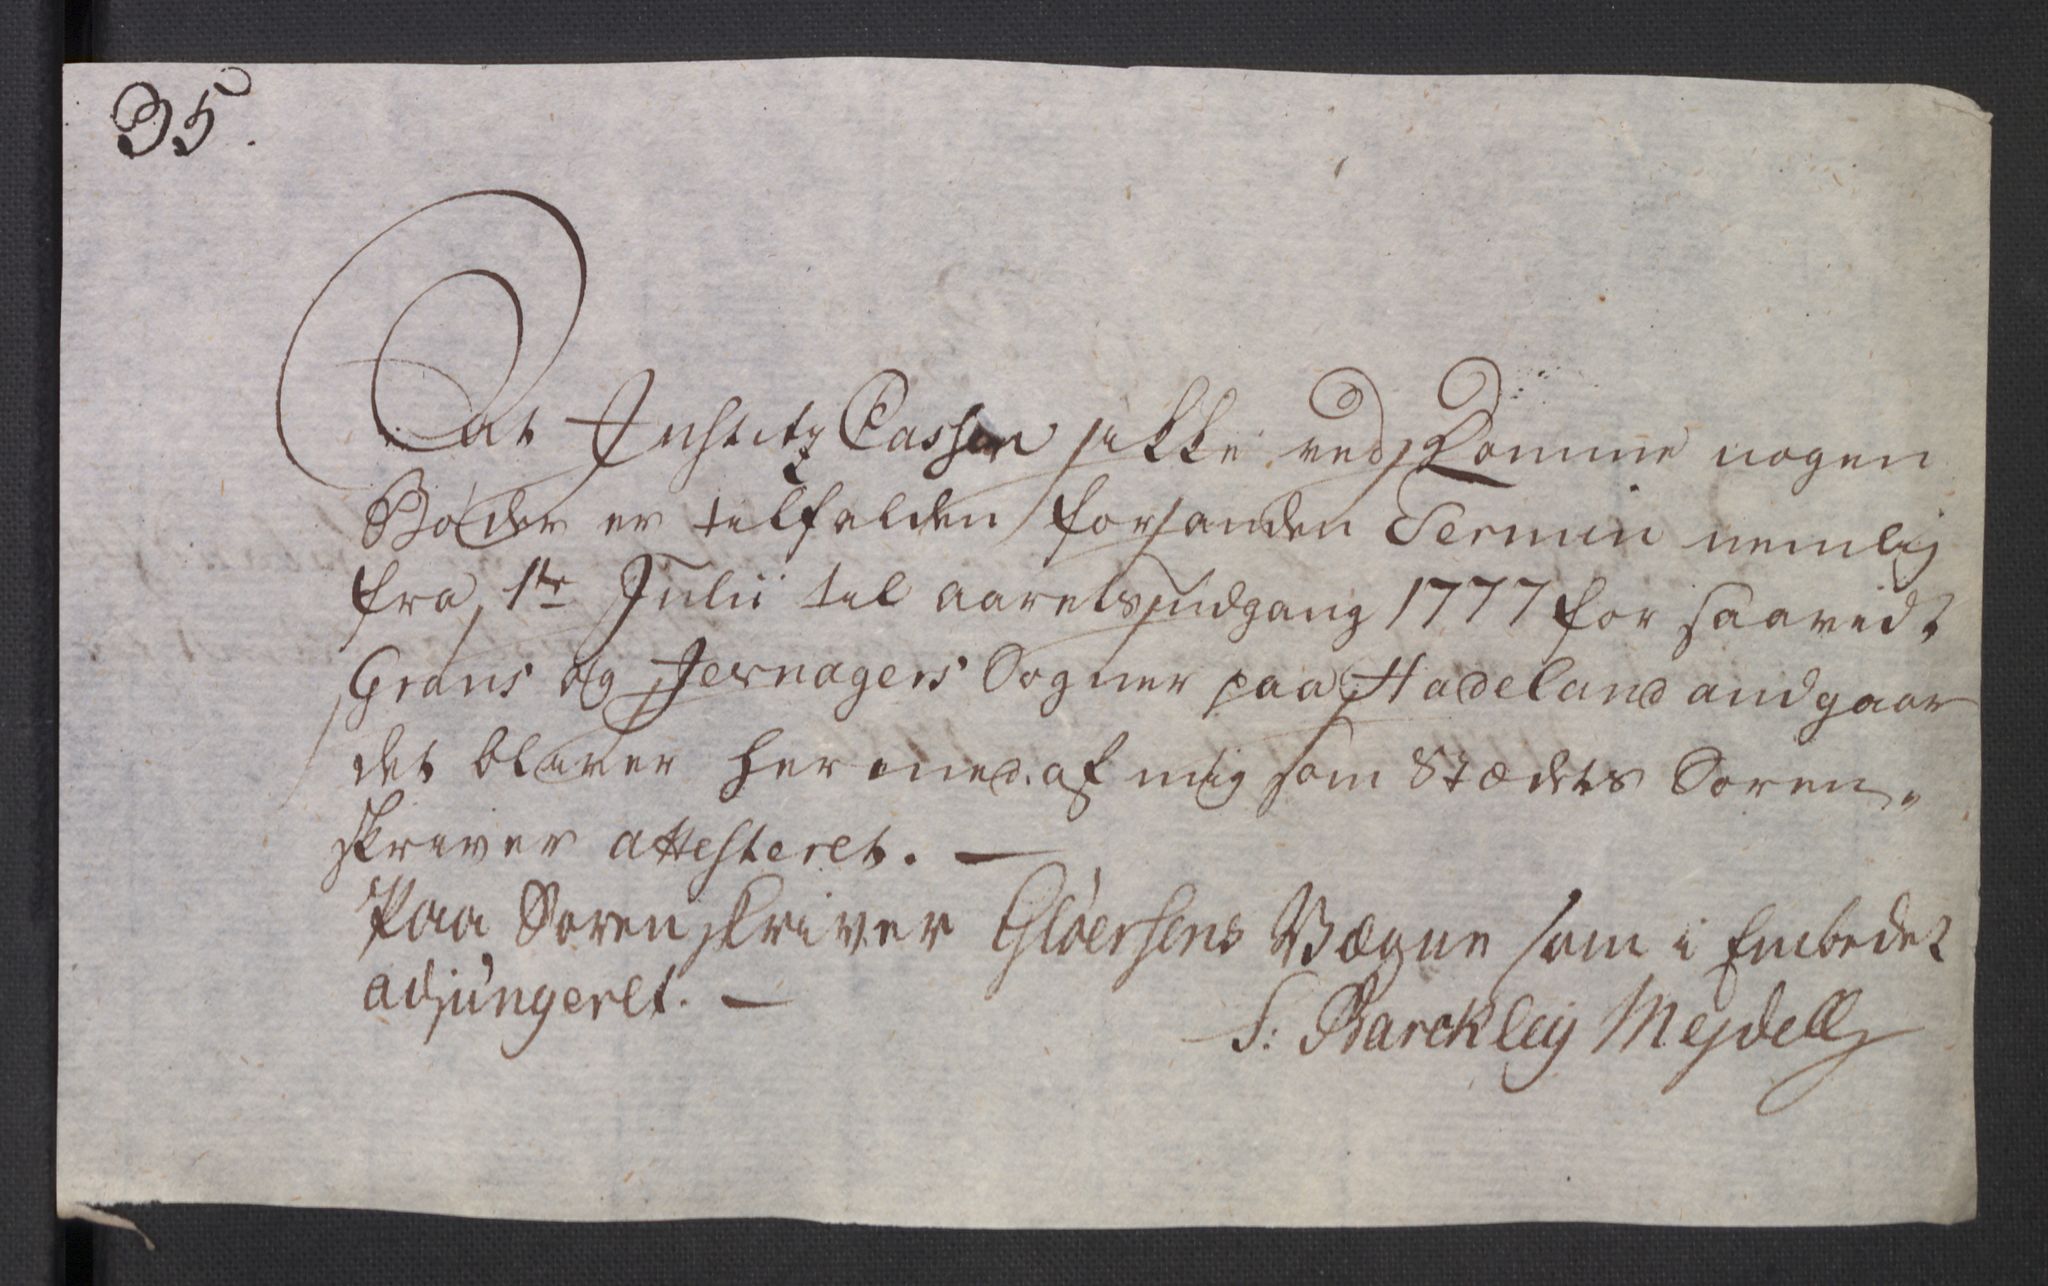 35.
At Justitz Cassen ikke ved Domme nogen
Bøder er tilfalden for sanden Termin nemlig
fra 1te Julii til aarets udgang 1777 for saavidt
Grans og Jevnagers Sogner paa Hadeland andgaar
det bliver her med af mig som Stædets Soren-
skriver attesteret. —
Paa Sorenskriver Gløersens Vægne som i Embedet
adjungeret. —
S: Barckleij Mejdell